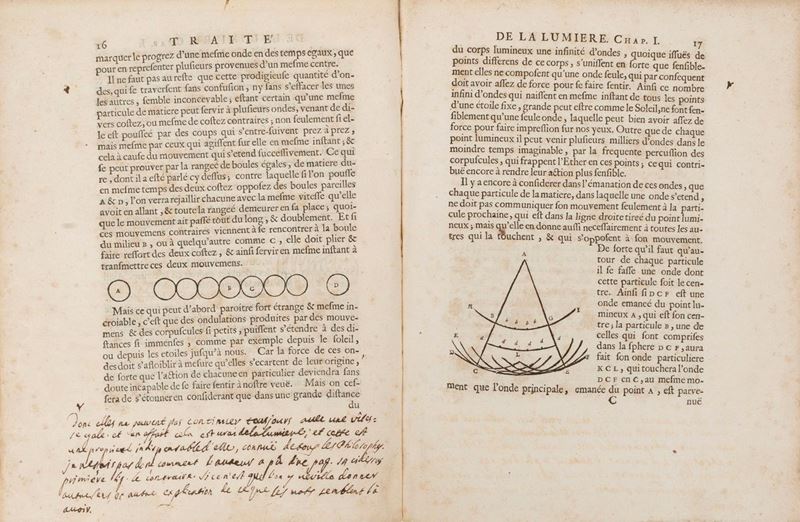 16 TRAITE
marquer le progrez d'une mesme onde en des temps egaux, que
pour en representer plusieurs provenues d'un mesme centre.
Il ne faut pas au reste que cette prodigieuse quantité d'on-
des, qui se traversent sans confusion, ny sans s'effacer les unes
les autres, semble inconcevable; estant certain qu'une mesme
particule de matiere peut servir à plusieurs ondes, venant de di-
vers costez, ou mesme de costez contraires; non seulement si el-
le est poussée par des coups qui s'entre-suivent prez à prez,
mais mesme par ceux qui agissent sur elle en mesme instant; &
cela à cause du mouvement qui s'etend successivement. Ce qui
se peut prouver par la rangée de boules égales, de matiere du-
re, dont il a esté parlé cy dessus; contre laquelle si l'on pousse
en mesme temps des deux costez opposez des boules pareilles
A & D, l'on verra rejaillir chacune avec la mesme vitesse qu'elle
avoit en allant, & toute la rangée demeurer en sa place; quoi-
que le mouvement ait passé tout du long, & doublement. Et si
ces mouvemens contraires viennent à se rencontrer à la boule
du milieu B, ou à quelqu'autre comme C, elle doit plier &
faire ressort des deux costez, & ainsi servir en mesme instant à
transmettre ces deux mouvemens.
A B C D
Mais ce qui peut d'abord paroitre fort étrange & mesme in-
croiable, c'est que des ondulations produites par des mouve-
mens & des corpuscules si petits, puissent s'étendre à des di-
stances si immenses, comme par exemple depuis le soleil,
ou depuis les etoiles jusqu'à nous. Car la force de ces on-
des doit s'affoiblir à mesure qu'elles s'ecartent de leur origine,
de sorte que l'action de chacune en particulier deviendra sans
doute incapable de se faire sentir à nostre veuë. Mais on ces-
sera de s'étonner en considerant que dans une grande distance
du
Donc elles ne peuvent pas continuer tousjours avec une vites-
se egale. et en effect cela est vrai de la lumiere, et cette est
une proprieté indispensable d'elle, connuë de tous les Philosophes.
je ne sçais pas dont comment l'auteur a pû dire pag.
premiere le contraire. si ce n'est que l'on y veuille donner
autre sens ou autre explication de ce que les mots semblent là
avoir.
DE LA LUMIERE. CHAP. I. 17
du corps lumineux une infinité d'ondes, quoique issuës de
points differens de ce corps, s'unissent en sorte que sensible-
ment elles ne composent qu'une onde seule, qui par consequent
doit avoir assez de force pour se faire sentir. Ainsi ce nombre
infini d'ondes qui naissent en mesme instant de tous les points
d'une étoile fixe, grande peut estre comme le Soleil, ne font sen-
siblement qu'une seule onde, laquelle peut bien avoir assez de
force pour faire impression sur nos yeux. Outre que de chaque
point lumineux il peut venir plusieurs milliers d'ondes dans le
moindre temps imaginable, par la frequente percussion des
corpuscules, qui frappent l'Ether en ces points; ce qui contri-
buë encore à rendre leur action plus sensible.
Il y a encore à considerer dans l'émanation de ces ondes, que
chaque particule de la matiere, dans laquelle une onde s'etend,
ne doit pas communiquer son mouvement seulement à la parti-
cule prochaine, qui est dans la ligne droite tirée du point lumi-
neux; mais qu'elle en donne aussi necessairement à toutes les au-
tres qui la touchent, & qui s'opposent à son mouvement.
De sorte qu'il faut qu'au-
tour de chaque particule
il se fasse une onde dont
cette particule soit le cen-
tre. Ainsi si DCF est une
onde emanée du point lu-
mineux A, qui est son cen-
tre; la particule B, une de
celles qui sont comprises
dans la sphere DCF, aura
fait son onde particuliere
KCL, qui touchera l'onde
DCF en C, au mesme mo-
A
H B b b b b G I
K d d d d L
D C E F
ment que l'onde principale, emanée du point A, est parve-
C nuë